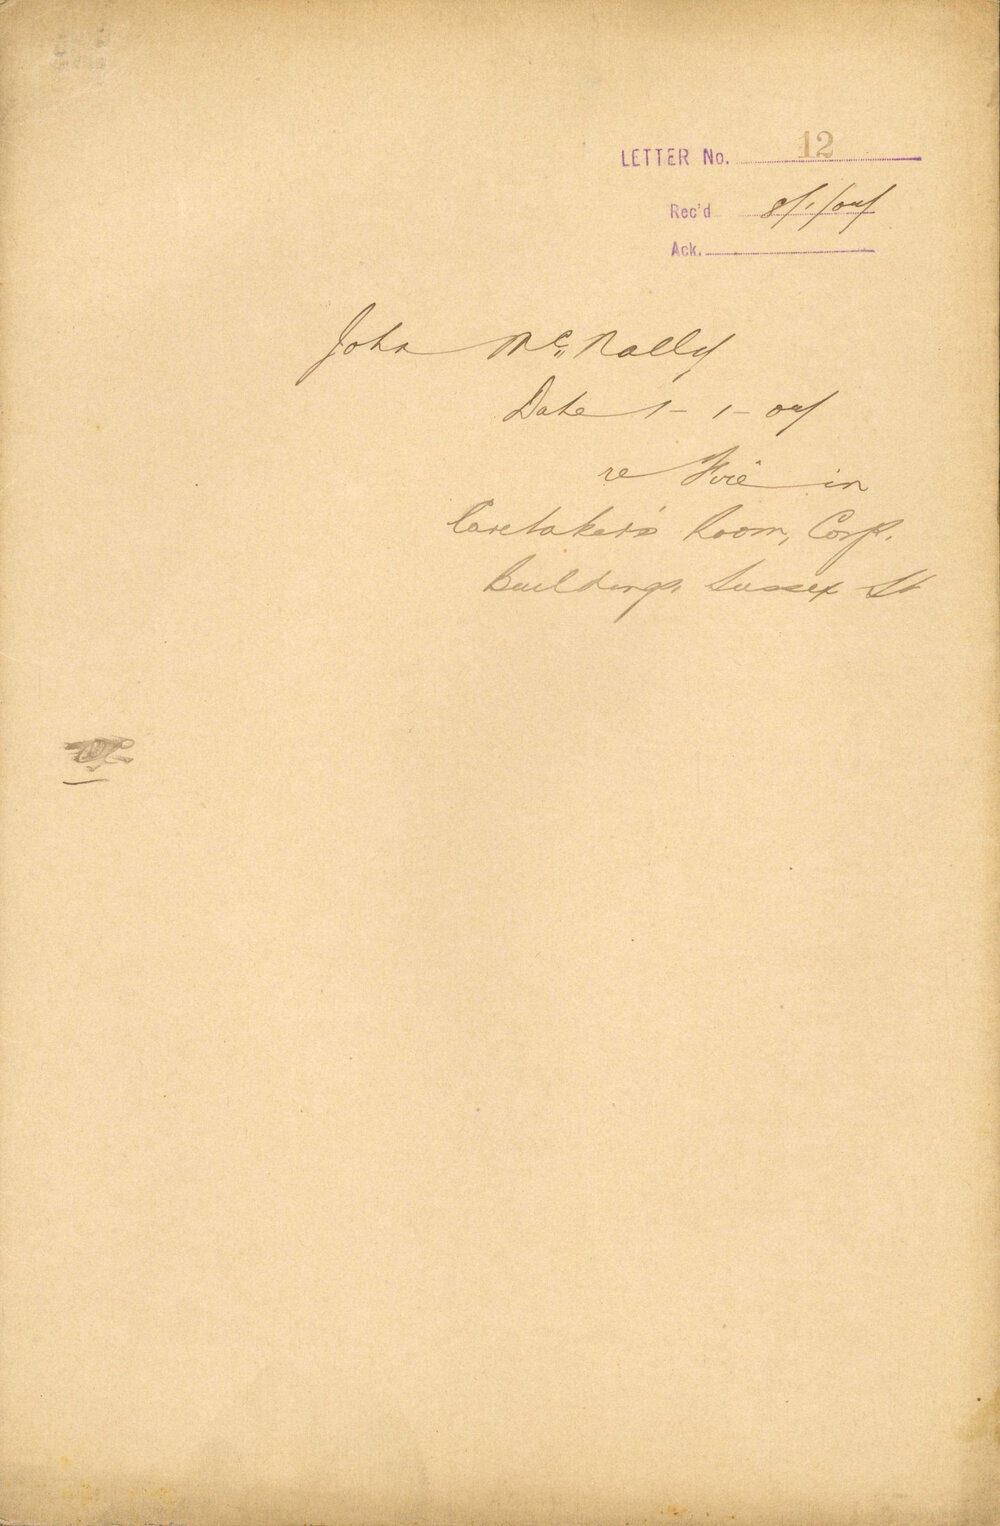 LETTER No. 12
Rec'd 8/1/04
Ack.
John McNally
Date 1-1-04
re Fire in
Caretaker's Room, Corp.
Buildings Sussex St